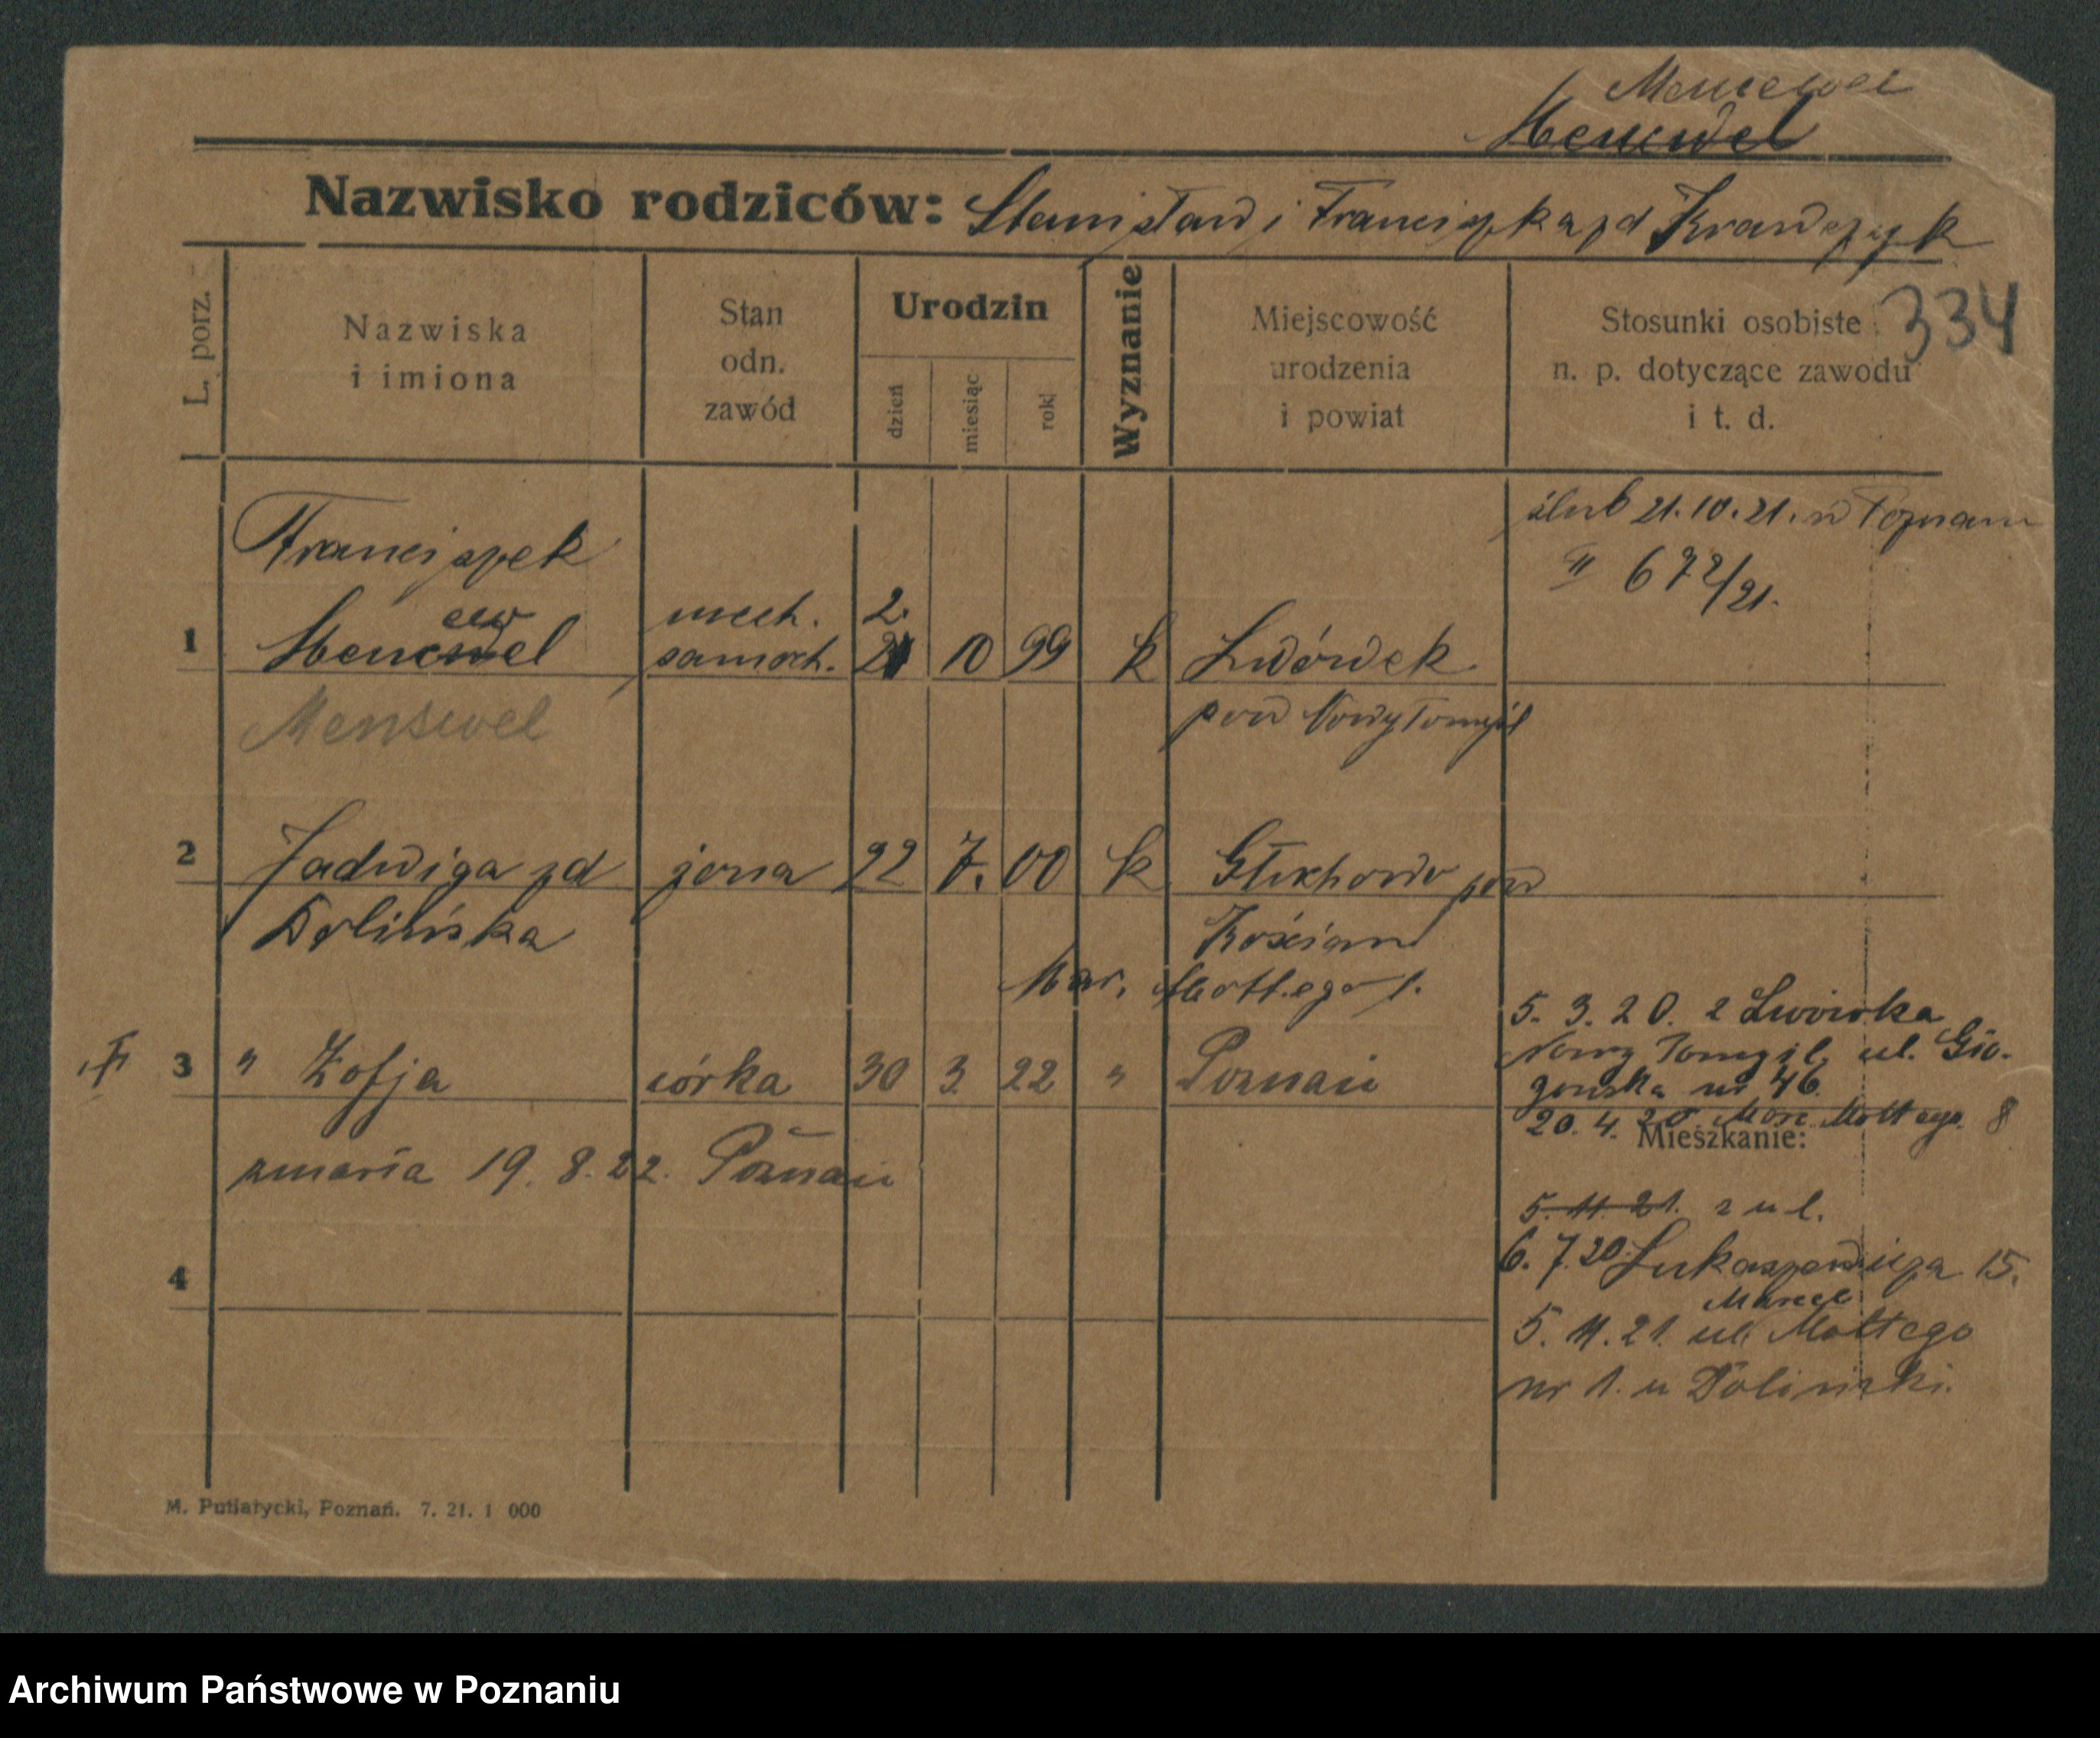 Mencewel
Mencwel
Nazwisko rodziców: Stanisław i Franciszka zd Krawczyk
334
L. porz.
Nazwiska
i imiona
Stan
odn.
zawód
Urodzin
dzień
miesiąc
rok
Wyznanie
Miejscowość
urodzenia
i powiat
Stosunki osobiste
n. p. dotyczące zawodu
i t. d.
ślub 21.10.21. w Poznaniu
II 672/21.
Franciszek
1 Mencwel mech. samoch. 2. 10 99 k Lwówek
cew
Menswel
pow Nowy Tomyśl
2 Jadwiga zd żona 22 7. 00 k Głuchowo pow
Dolińska Kościan
Mar. Mottego 1.
3 " Zofja córka 30 3. 22 " Poznań
zmarła 19. 8. 22. Poznań
5. 3. 20. z Lwówka
Nowy Tomyśl, ul. Gło-
gowska nr 46.
20. 4. 20. Marc. Mottego 8
Mieszkanie:
5. 11. 21. z ul.
6. 7. 20 Łukaszewicza 15.
Marcel
5. 11. 21. ul. Mottego
nr 1. u Doliński.
4
M. Putiatycki, Poznań. 7. 21. 1 000
Archiwum Państwowe w Poznaniu